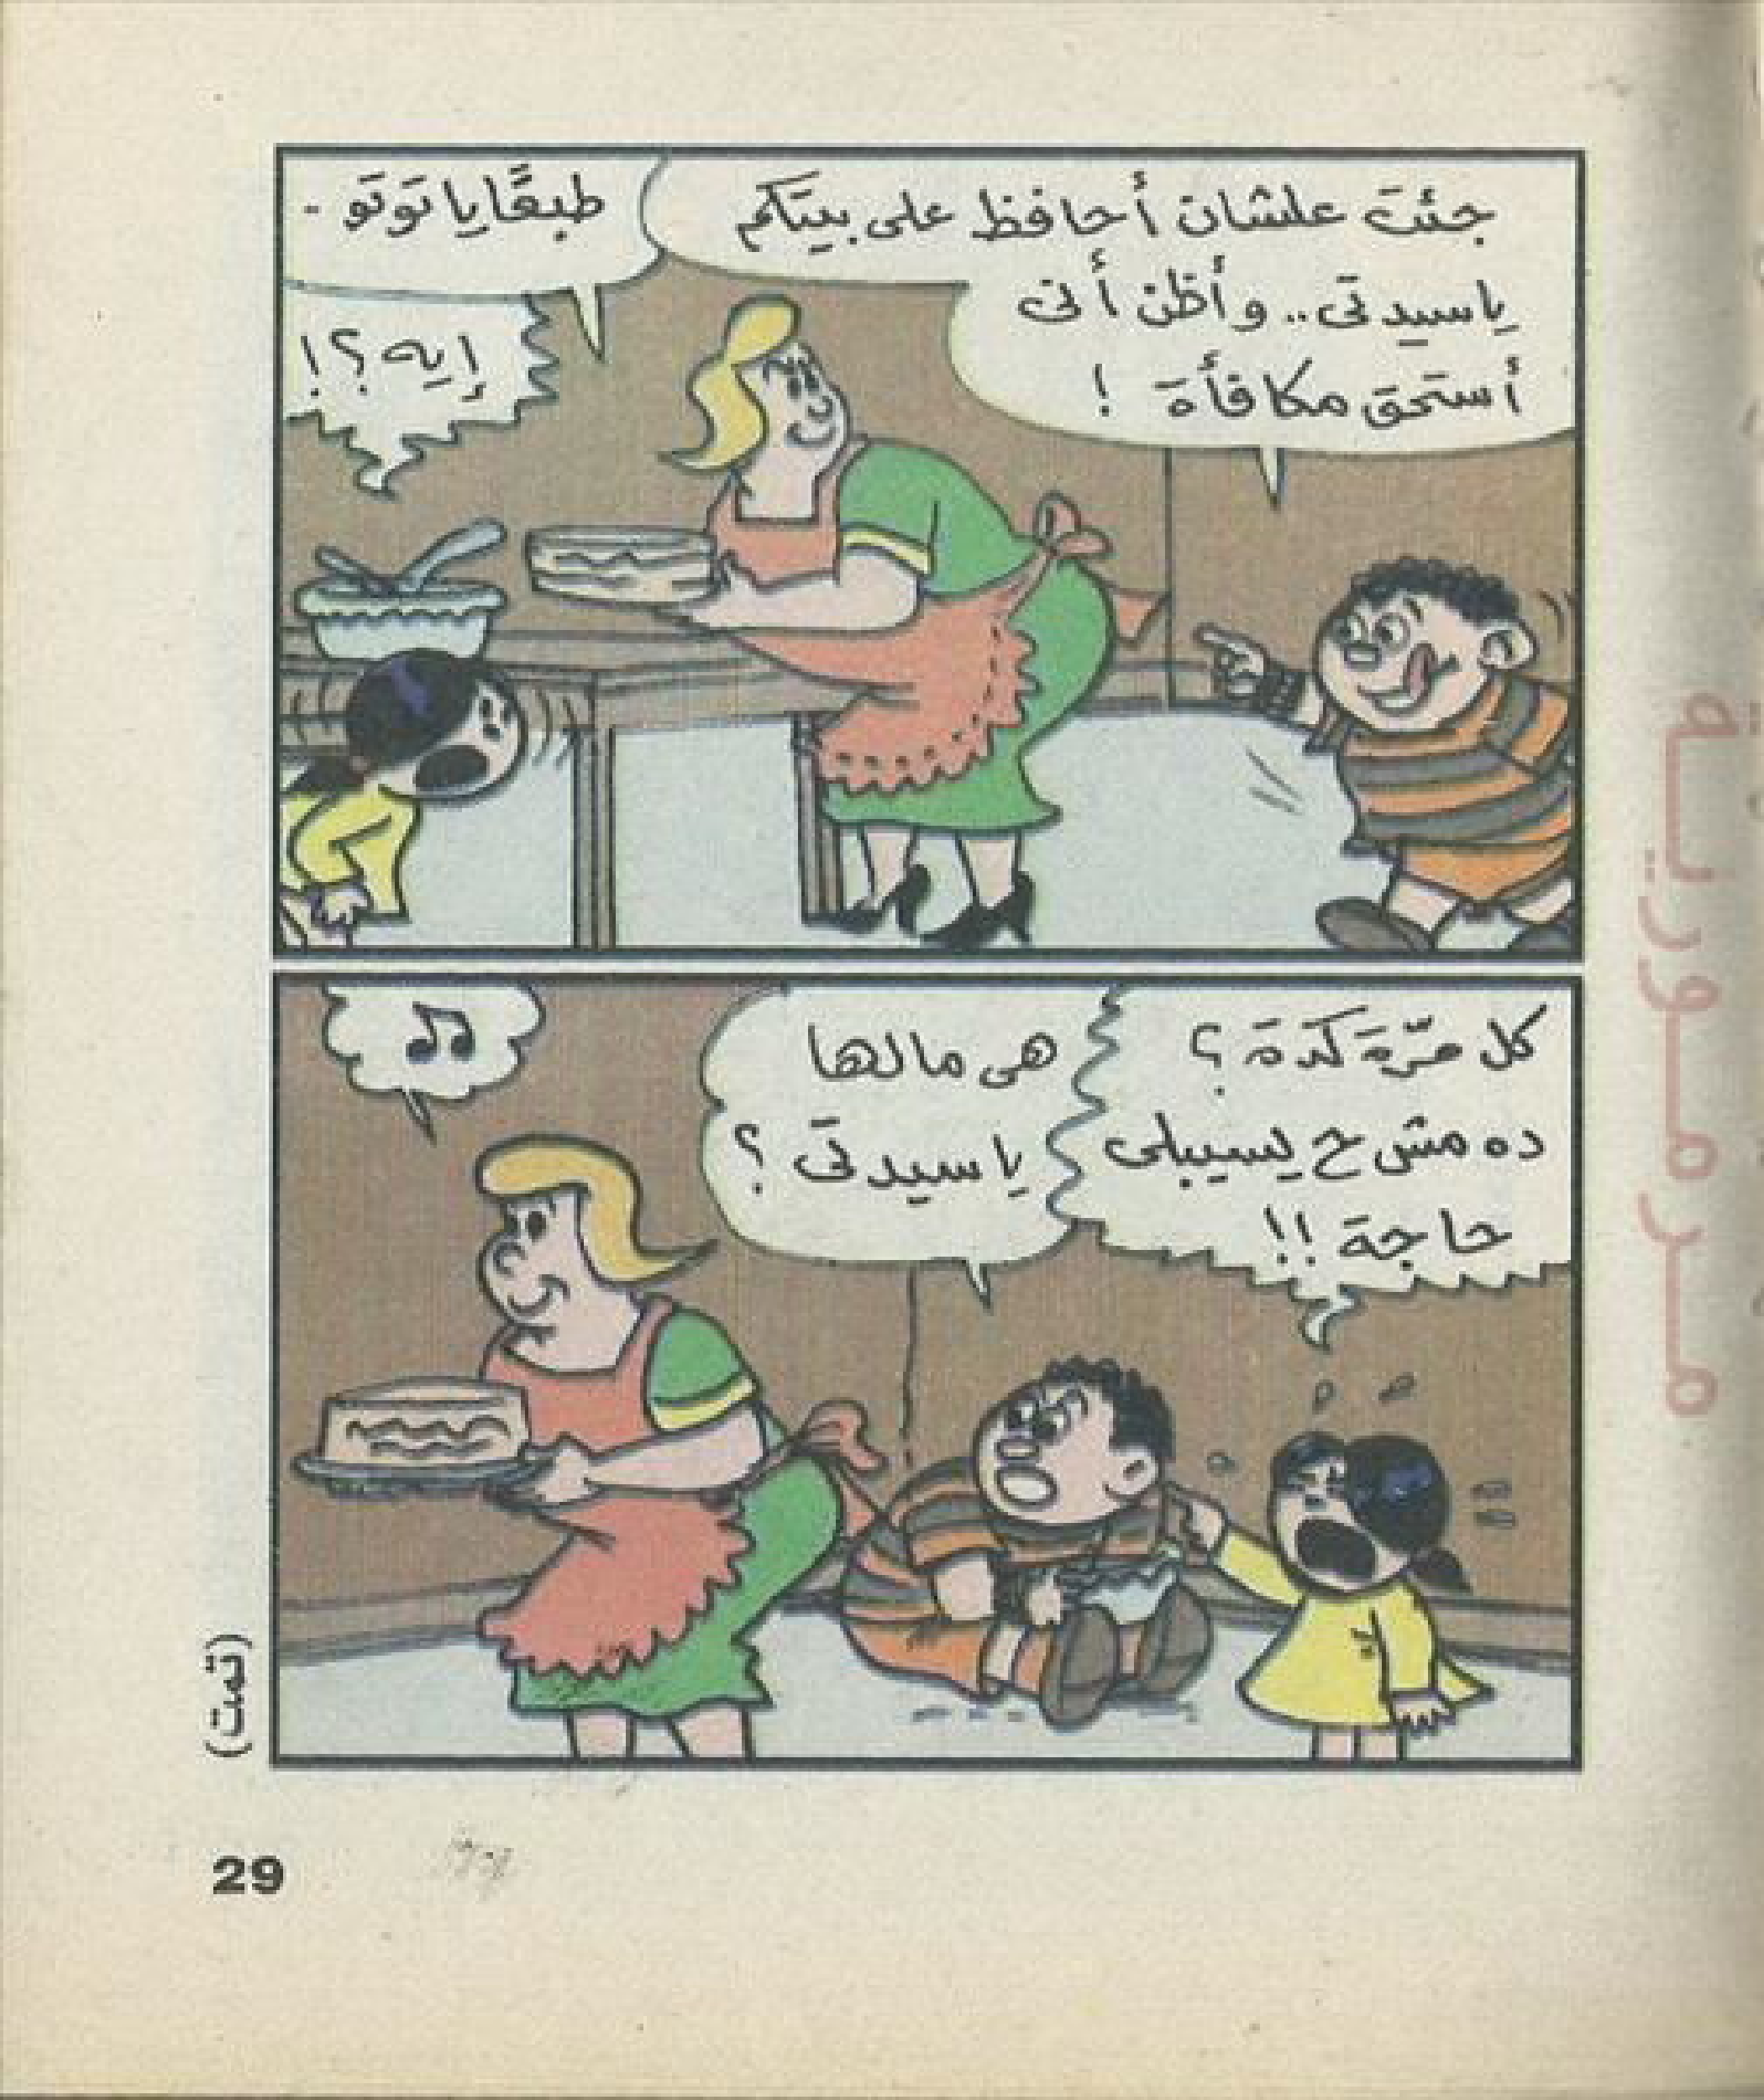 جئت علشان أحافظ على بيتكم
ياسيدتى.. وأظن أنى
أستحق مكافأة !
طبعًا يا توتو -
إيه ؟!
كل مرّة كدة ؟
ده مش ح يسيبلى
حاجة !!
هى مالها
يا سيدتى ؟
(تمت)
29